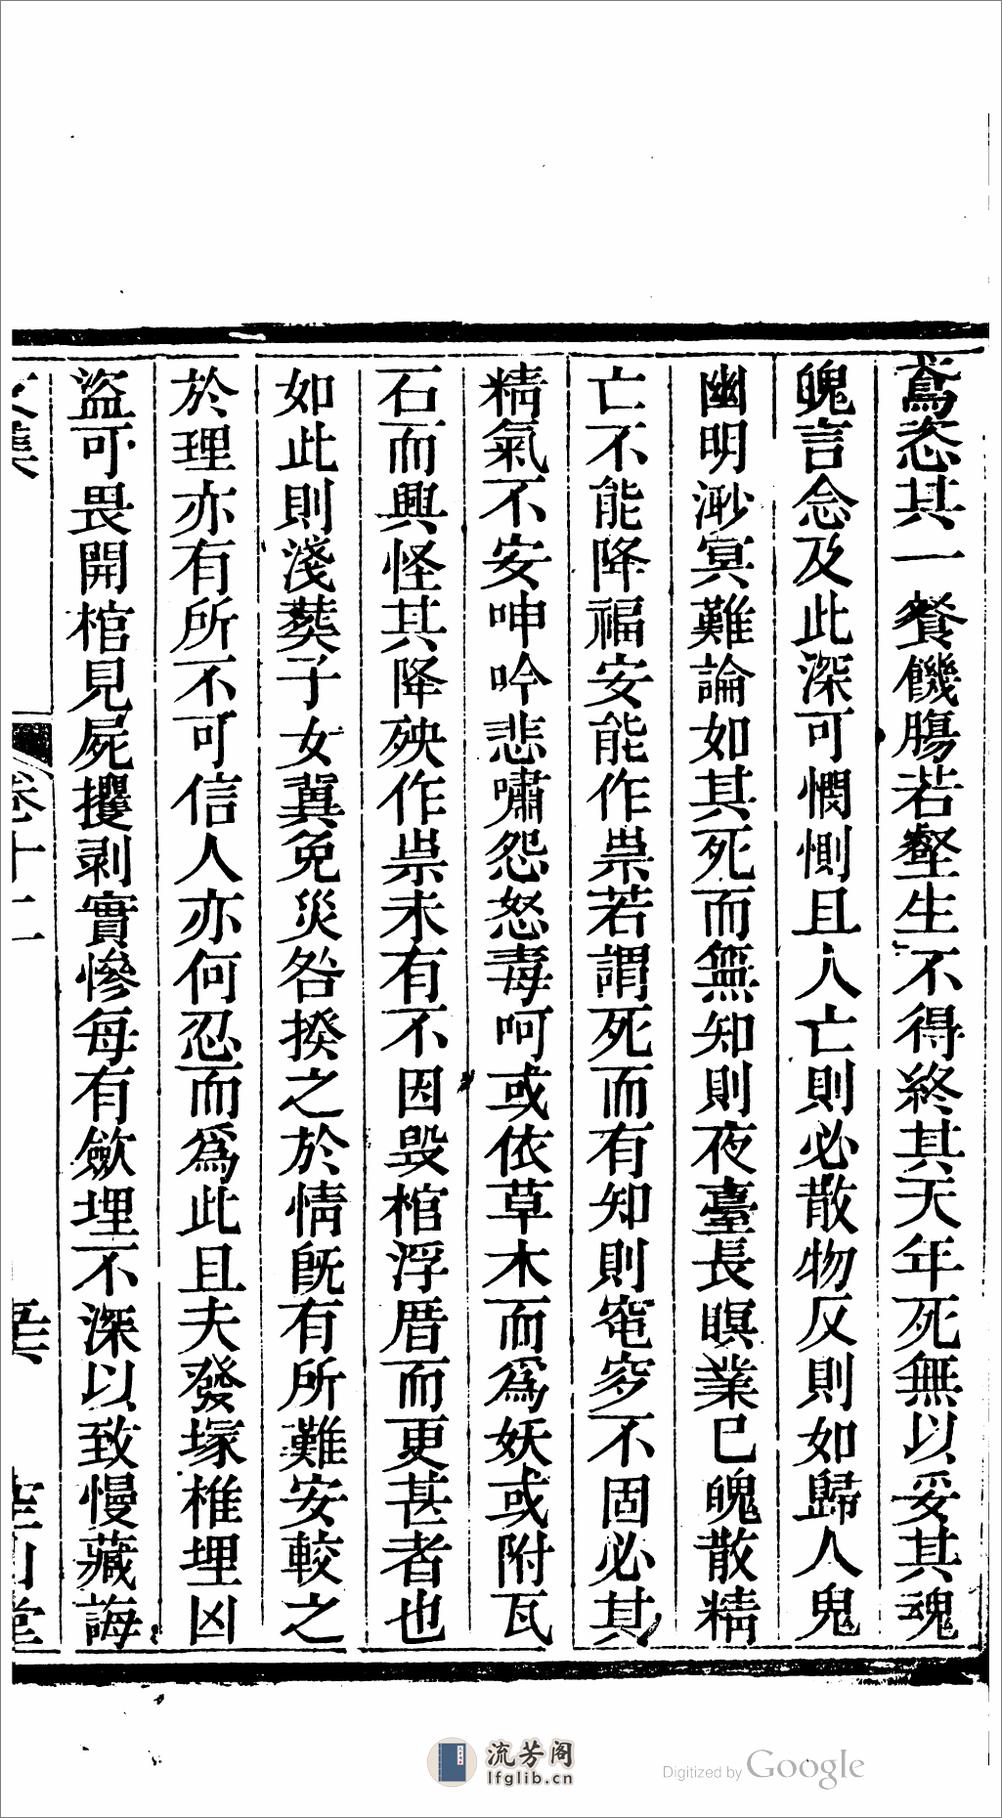 鳶恣其一餐饑腸若壑生不得終其天年死無以妥其魂
魄言念及此深可憫惻且人亡則必散物反則如歸人鬼
幽明渺冥難論如其死而無知則夜臺長瞑業已魄散精
亡不能降福安能作祟若謂死而有知則窀穸不固必其
精氣不安呻吟悲嘯怨怒毒呵或依草木而爲妖或附瓦
石而興怪其降殃作祟未有不因毀棺浮厝而更甚者也
如此則淺葬子女冀免災咎揆之於情旣有所難安較之
於理亦有所不可信人亦何忍而爲此且夫發塚椎埋凶
盜可畏開棺見屍攫剥實慘每有歛埋不深以致慢藏誨
文集
卷十二
流芳阁
lfglib.cn
Digitized by Google